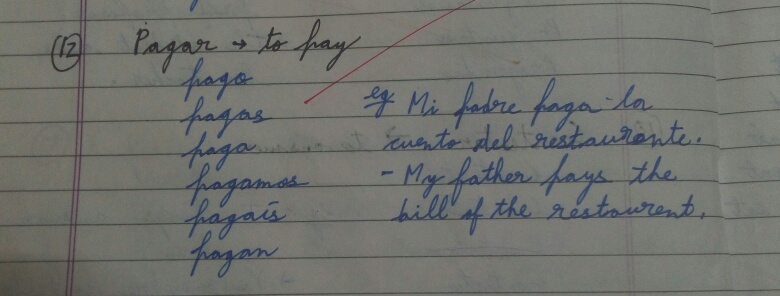 (12) Pagar → to pay
pago
pagas
paga
pagamos
pagaís
pagan
eg Mi padre paga la
cuento del restaurante.
- My father pays the
bill of the restaurent.